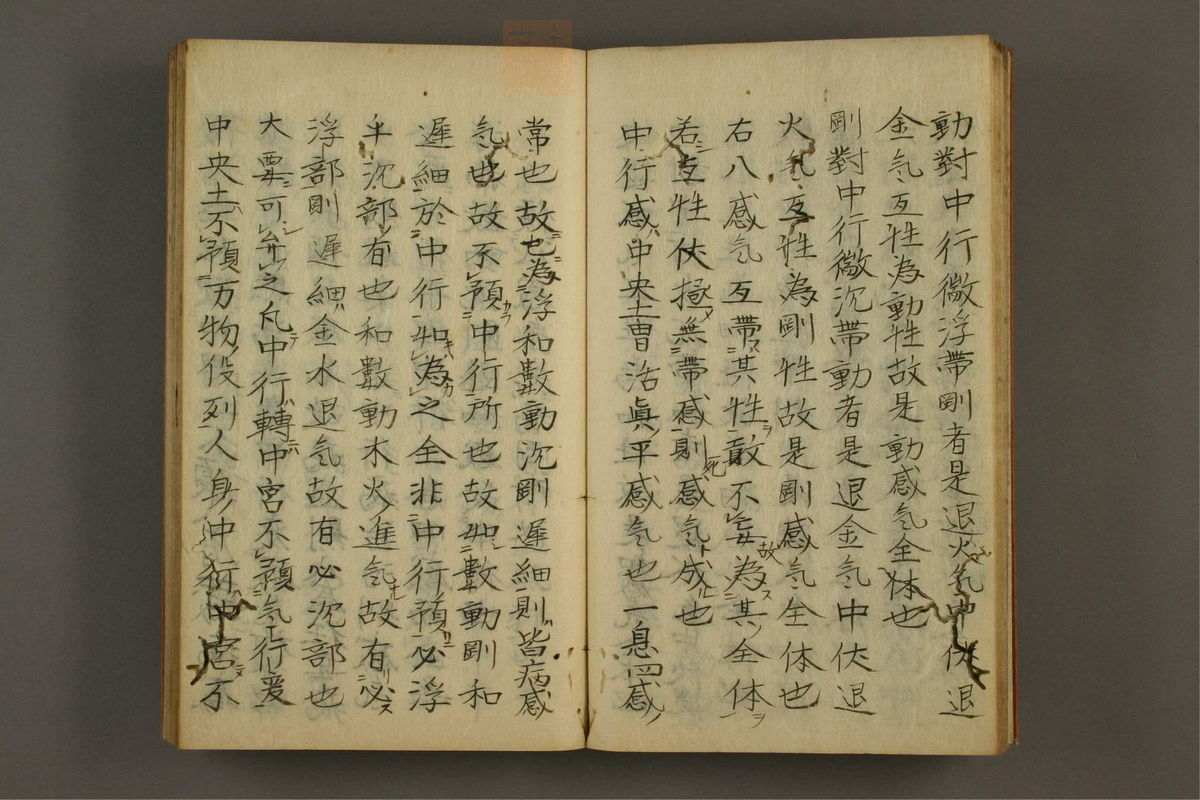 動對中行微浮帶剛者是退火氣中伏退
金气互性為動性故是動感气全体也
剛對中行微沉帶動者是退金气中伏退
火气互性為剛性故是剛感气全体也
右八感气互帶其性敢不妄故為其全体
若互性伏極無帶感則死感气成也
中行感中央土曺活眞平感气也一息四感
常也故也為浮和數動沉剛遲細則皆病感
气也故不預中行所也故如數動剛和
遲細於中行如為之全非中行預必浮
半沉部有也和數動木火進气故有必
浮部剛遲細金水退气故有必沉部也
大要可弁之凡中行轉中宮不預气行爰
中央土不預万物役列人身中中宮不